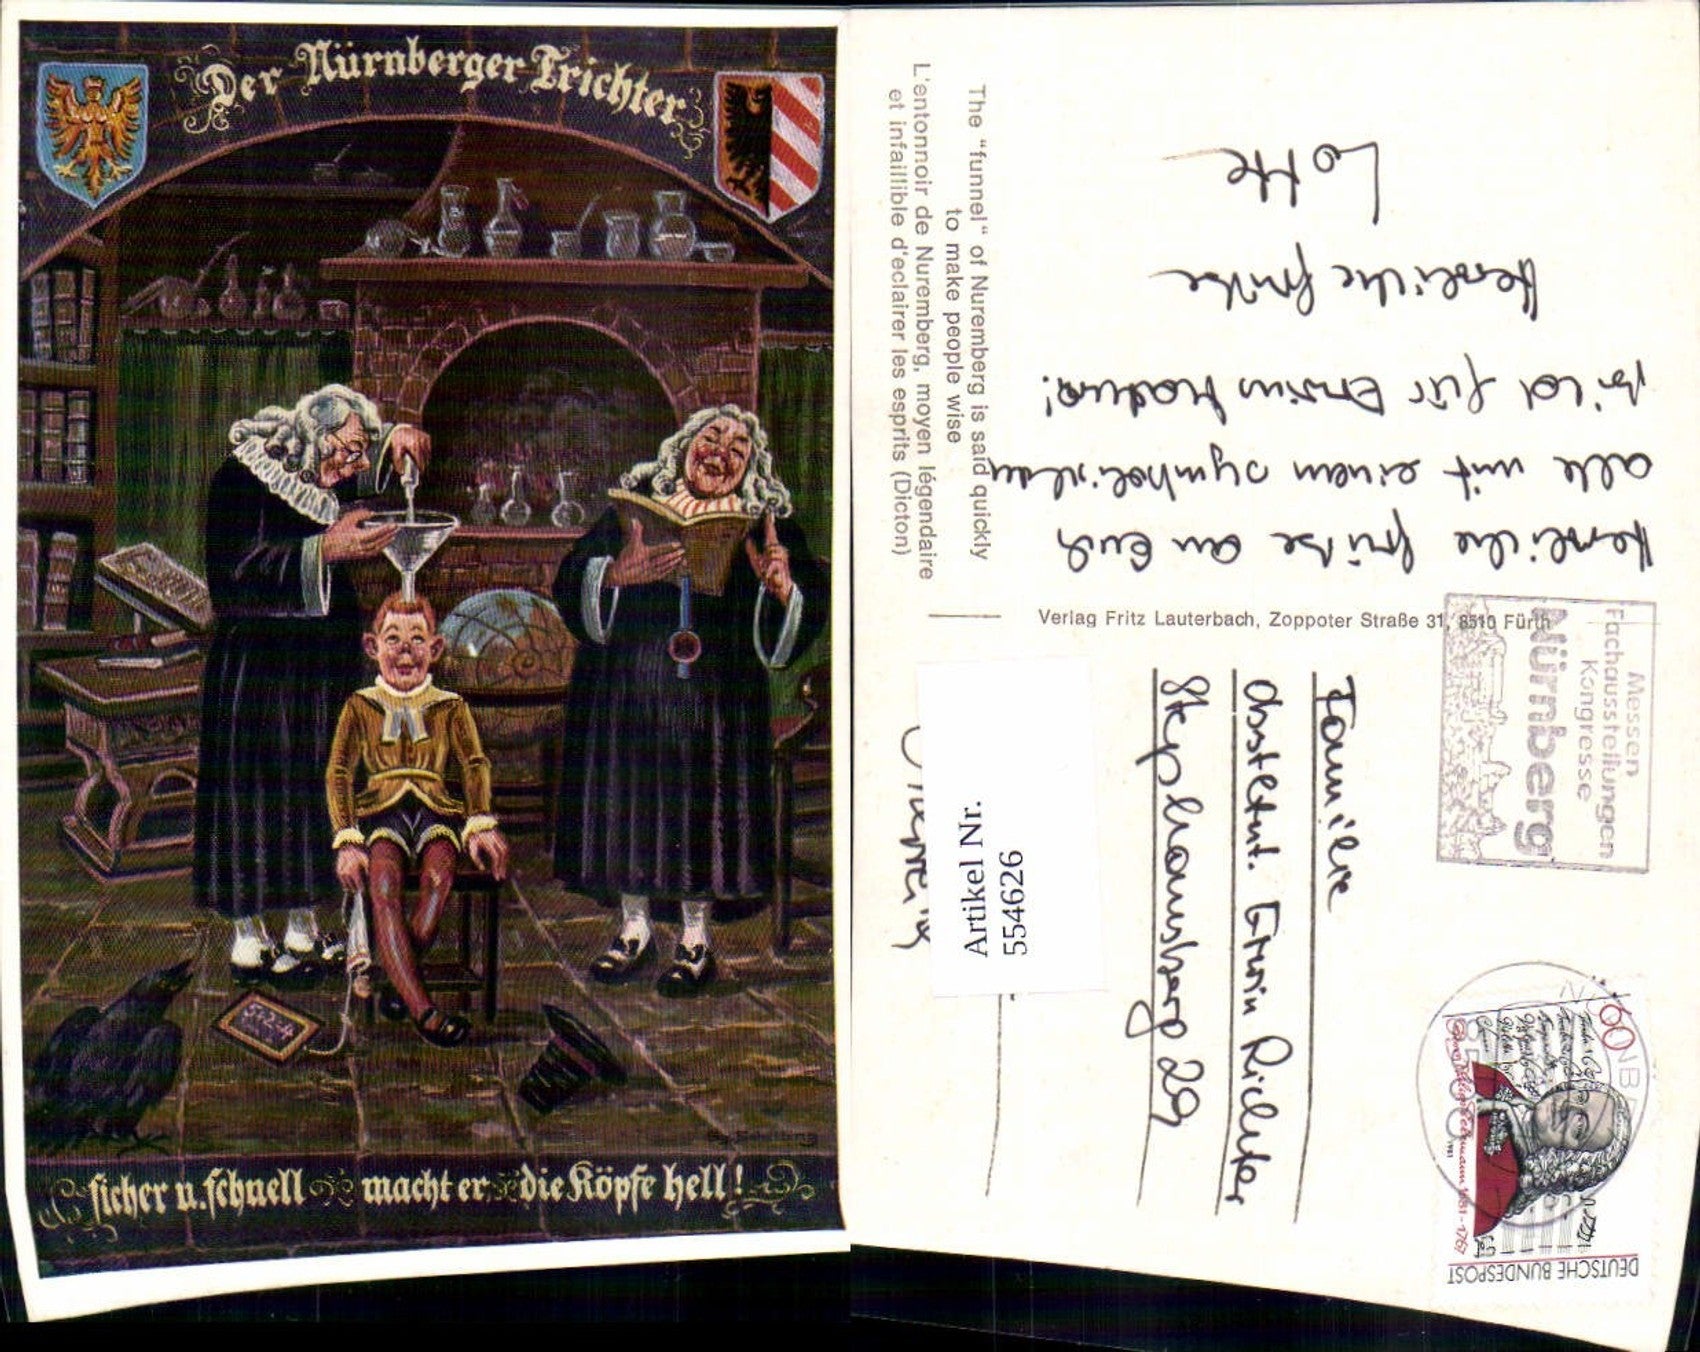 Der Nürnberger Trichter
5+2=4
sicher u. schnell macht er die Köpfe hell!
The "funnel" of Nuremberg is said quickly
to make people wise
L'entonnoir de Nuremberg, moyen légendaire
et infaillible d'eclairer les esprits (Dicton)
Herzliche Grüße an Euch
alle mit einem symbolischen
Bild für Erwins
Herzliche Grüße
Lotte
Verlag Fritz Lauterbach, Zoppoter Straße 31, 8510 Fürth
Messen
Fachausstellungen
Kongresse
Nürnberg
Familie
Erwin Richter
29
Artikel Nr.
554626
60
Georg Philipp Telemann 1681-1767
1981
DEUTSCHE BUNDESPOST